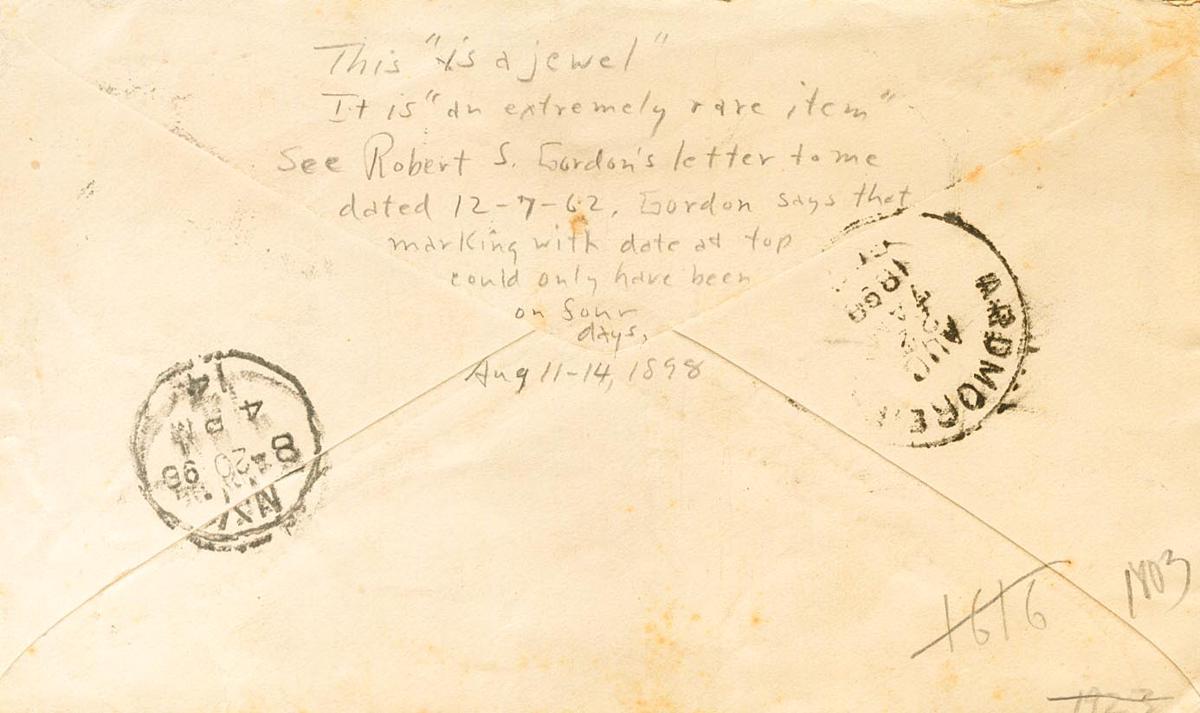 This "is a jewel"
It is "an extremely rare item"
See Robert S. Gordon's letter to me
dated 12-7-62. Gordon says that
marking with date at top
could only have been
on four
days,
Aug 11-14, 1898
ARDMORE
AUG
4
1898
N.Y.
8
20
98
4
14
1616
1803